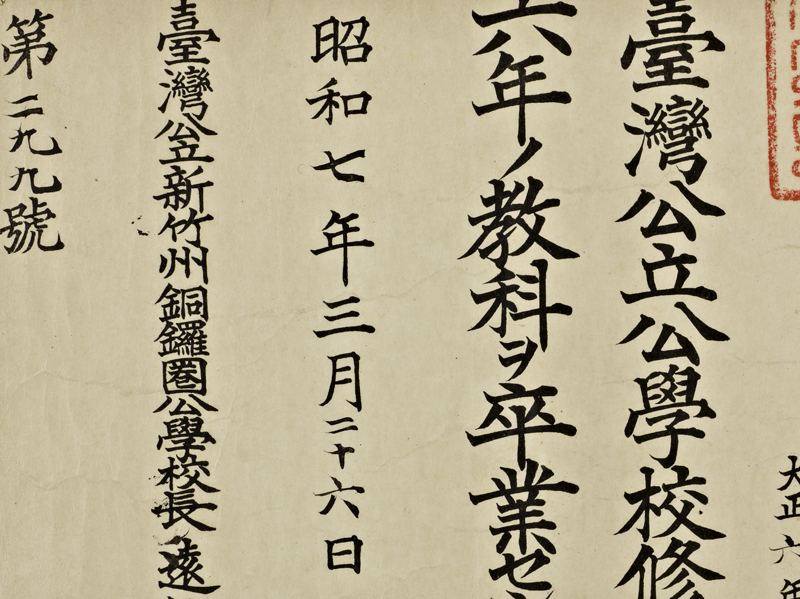 大正六年
臺灣公立公學校修
六年ノ教科ヲ卒業セ
昭和七年三月二十六日
臺灣公立新竹州銅鑼圈公學校長遠
第二九九號